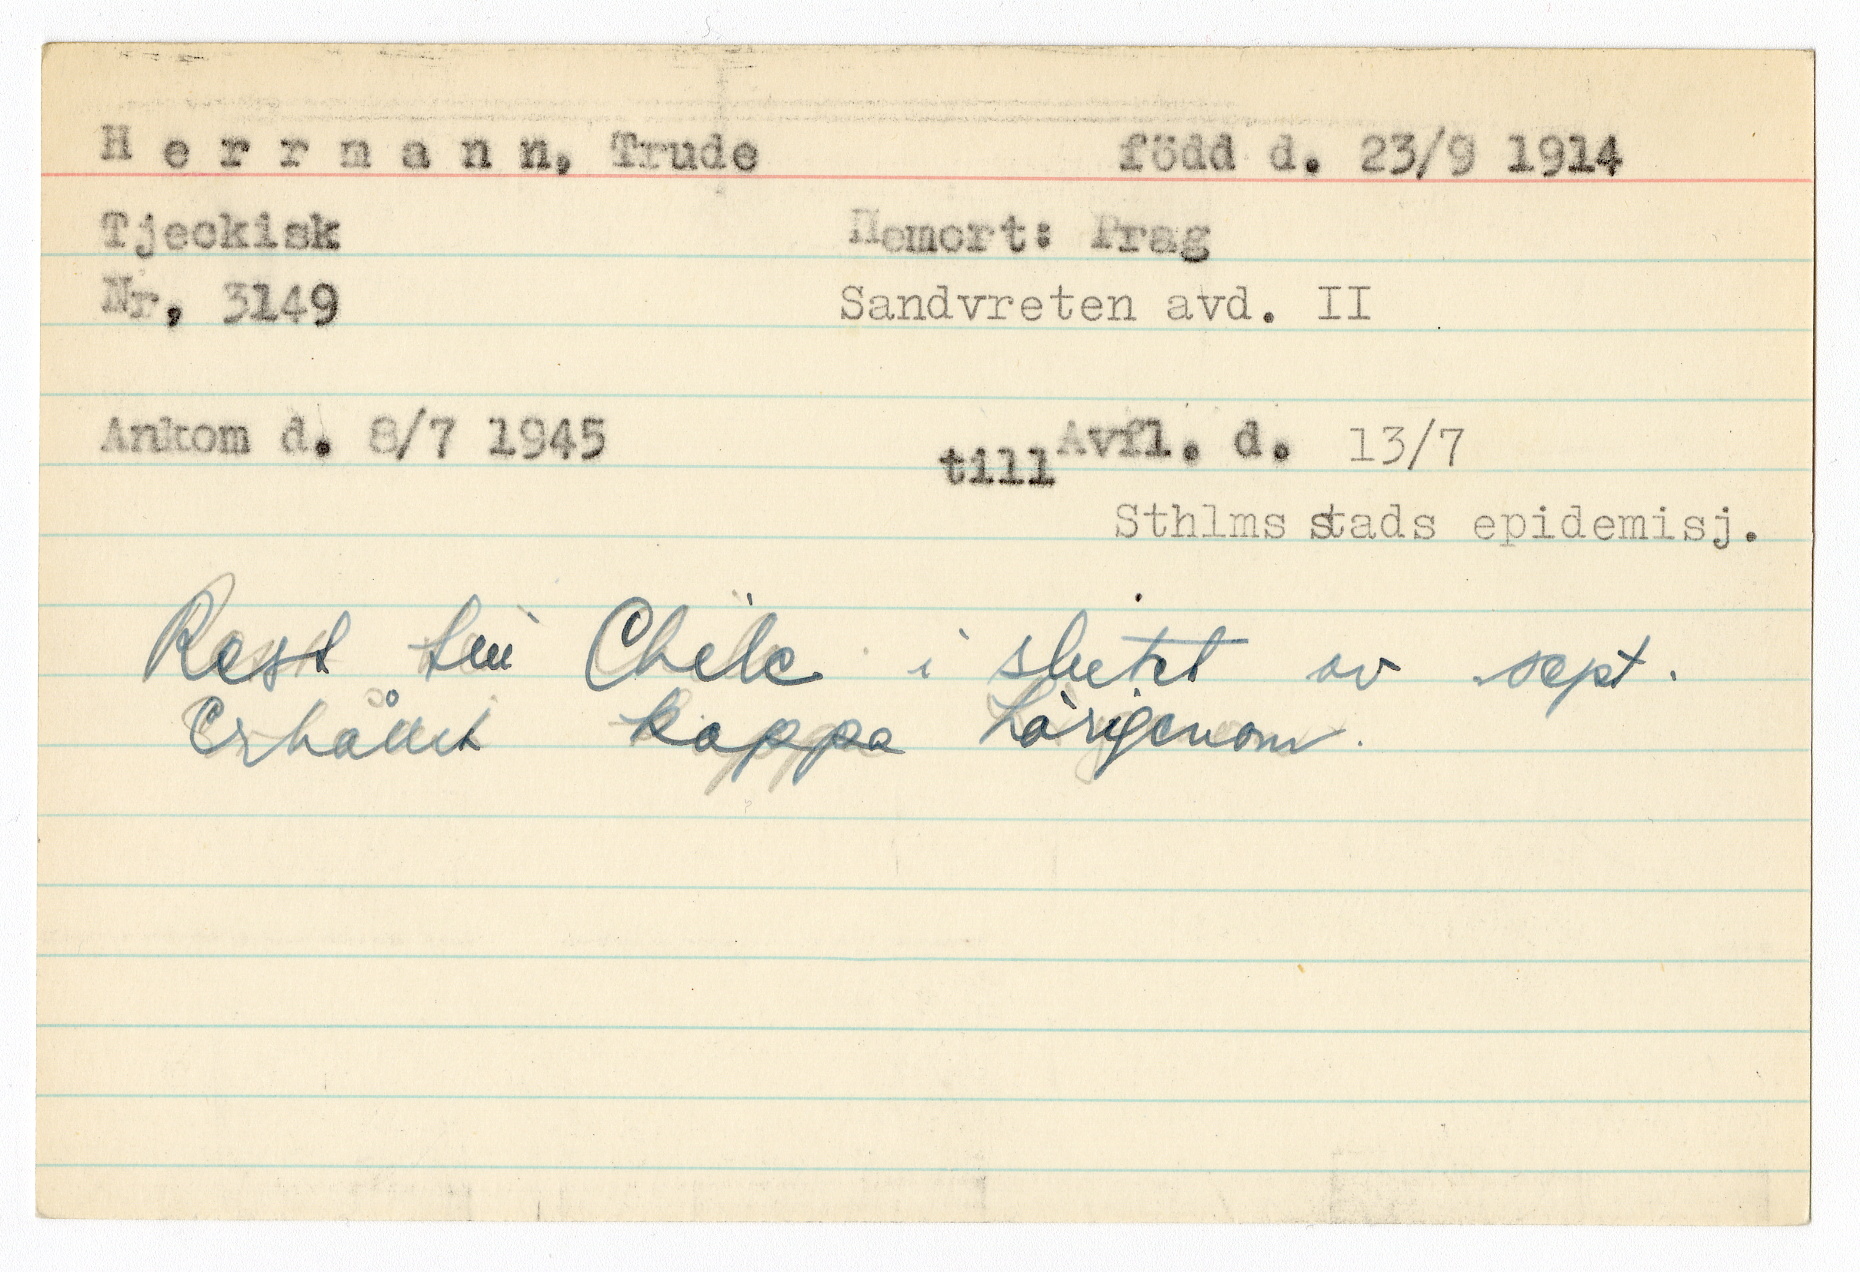 H e r r m a n n, Trude född d. 23/9 1914
Tjeckisk Hemort: Prag
Nr, 3149 Sandvreten avd. II
Ankom d. 8/7 1945 Avfl. d. 13/7
till
Sthlms stads epidemisj.
Rest till Chile i slutet av sept.
Erhållit kappa härigenom.